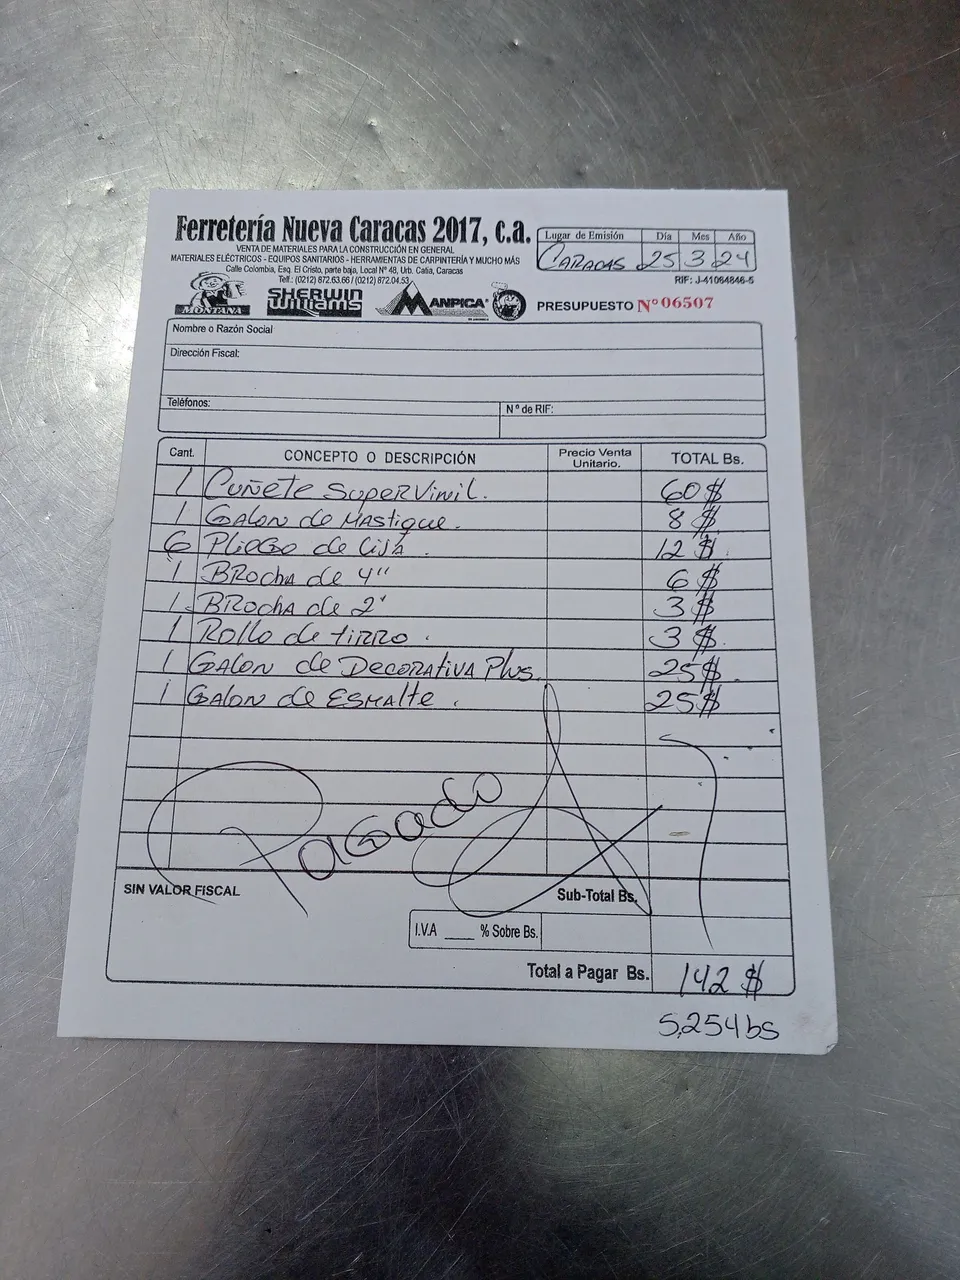 Ferretería Nueva Caracas 2017, c.a.
VENTA DE MATERIALES PARA LA CONSTRUCCIÓN EN GENERAL
MATERIALES ELÉCTRICOS - EQUIPOS SANITARIOS - HERRAMIENTAS DE CARPINTERÍA Y MUCHO MÁS
Calle Colombia, Esq. El Cristo, parte baja, Local Nº 48, Urb. Catia, Caracas
Telf.: (0212) 872.63.66 / (0212) 872.04.53
Lugar de Emisión Día Mes Año
CARACAS 25 3 24
RIF: J-41064846-5
MONTANA SHERWIN WILLIAMS MANPICA
PRESUPUESTO Nº 06507
Nombre o Razón Social
Dirección Fiscal:
Teléfonos: Nº de RIF:
Cant. CONCEPTO O DESCRIPCIÓN Precio Venta Unitario. TOTAL Bs.
1 Cuñete SuperVinil. 60$
1 Galon de Mastique. 8$
6 Pliego de Lija. 12$
1 Brocha de 4" 6$
1 Brocha de 2' 3$
1 Rollo de tirro. 3$
1 Galon de Decorativa Plus. 25$
1 Galon de Esmalte. 25$
Pagado
SIN VALOR FISCAL
Sub-Total Bs.
I.V.A ___ % Sobre Bs.
Total a Pagar Bs. 142$
5,254bs